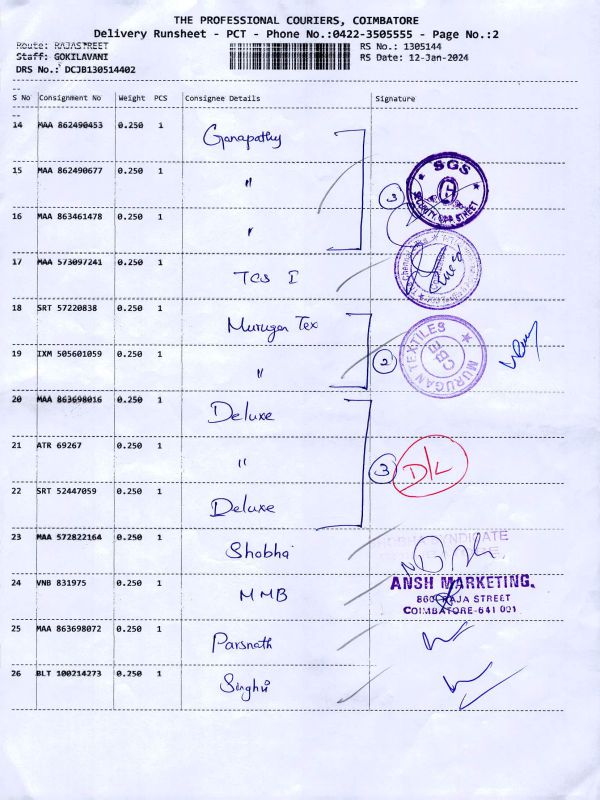 THE PROFESSIONAL COURIERS, COIMBATORE
Delivery Runsheet - PCT - Phone No.:0422-3505555 - Page No.:2
Route: RAJASTREET
RS No.: 1305144
Staff: GOKILAVANI
RS Date: 12-Jan-2024
DRS No.: DCJB130514402
S No Consignment No Weight PCS Consignee Details Signature
14 MAA 862490453 0.250 1 Ganapathy
15 MAA 862490677 0.250 1 "
SGS
STREET
3
16 MAA 863461478 0.250 1 "
17 MAA 573097241 0.250 1 TCS I
18 SRT 57220838 0.250 1 Murugan Tex
MURUGAN TEXTILES
CBE
19 IXM 505601059 0.250 1 "
2
20 MAA 863698016 0.250 1 Deluxe
21 ATR 69267 0.250 1 "
3 D/L
22 SRT 52447059 0.250 1 Deluxe
23 MAA 572822164 0.250 1 Shobha
SYNDICATE
24 VNB 831975 0.250 1 MMB
ANSH MARKETING.
860 RAJA STREET
COIMBATORE-641 001
25 MAA 863698072 0.250 1 Parsnath
26 BLT 100214273 0.250 1 Singhvi